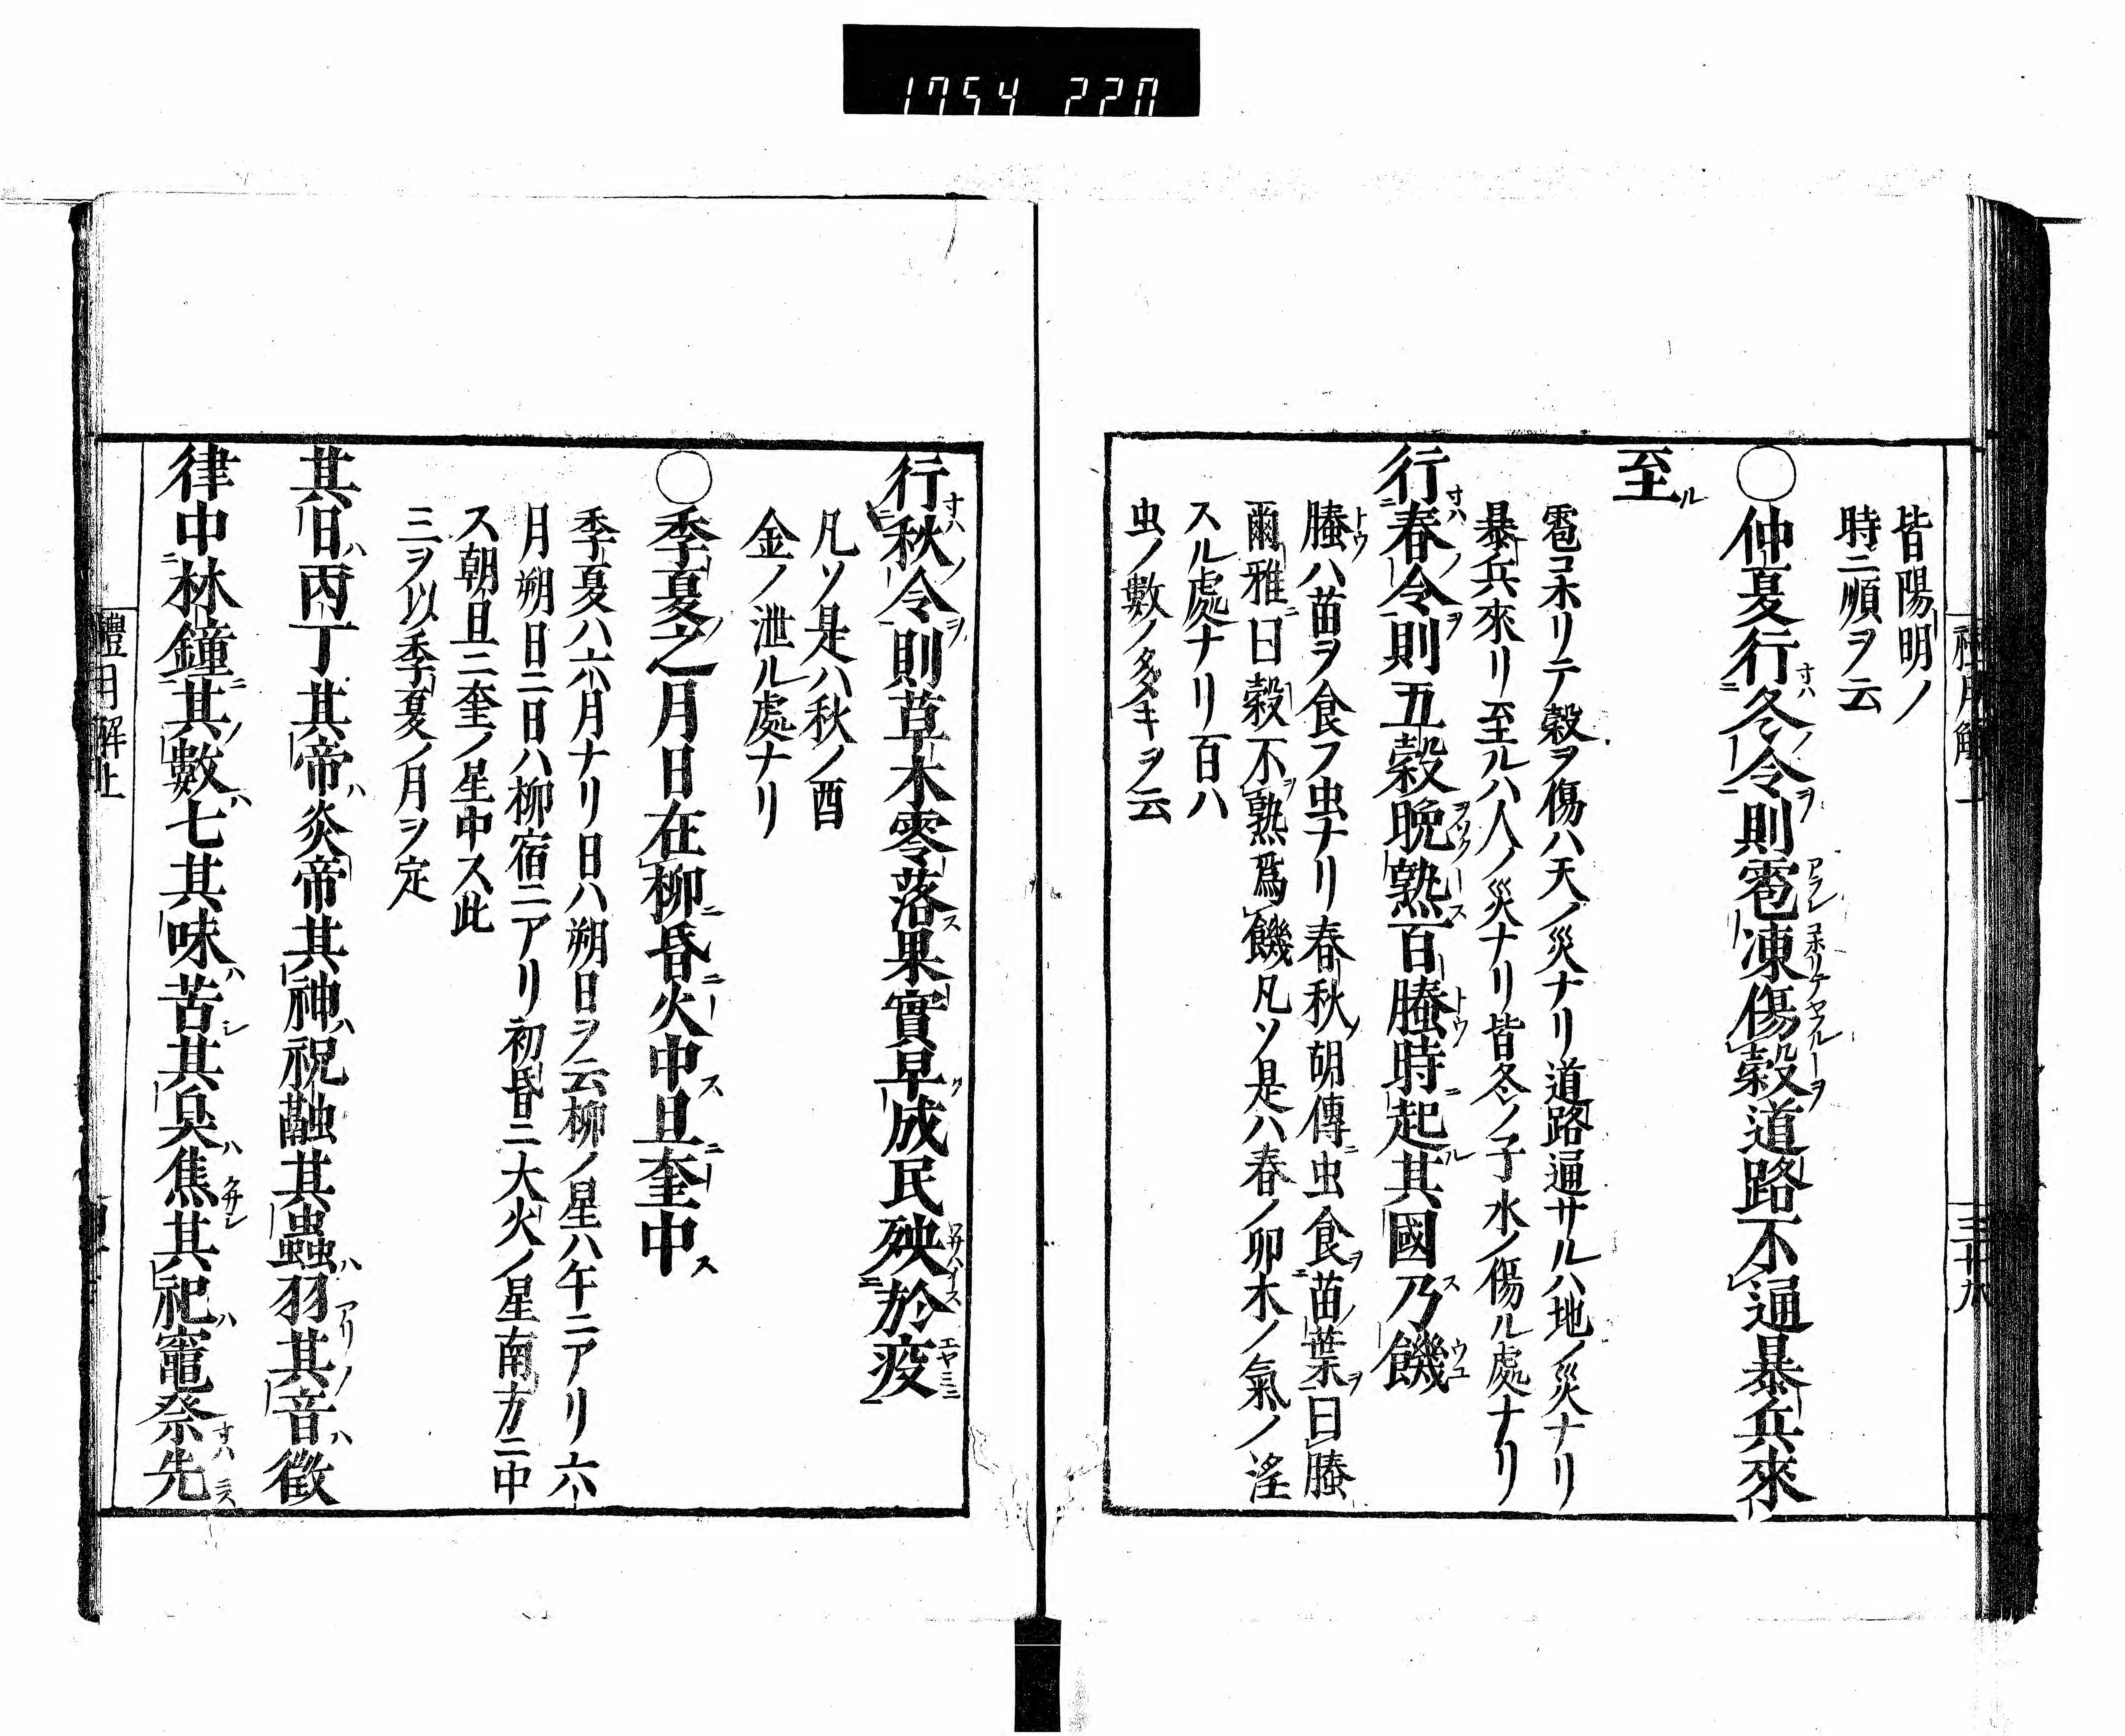 1754 220
皆陽明ノ
時ニ順ヲ云
○仲夏行冬令則雹凍傷穀道路不通暴兵來
至
雹コホリテ穀ヲ傷ハ天ノ災ナリ道路通サルハ地ノ災ナリ
暴兵來リ至ルハ人ノ災ナリ皆冬ノ子水ノ傷ル處ナリ
行春令則五穀晩熟百螣時起其國乃饑
螣ハ苗ヲ食フ虫ナリ春秋胡傳ニ虫食苗葉曰螣
爾雅ニ曰穀不熟爲饑凡ソ是ハ春ノ卯木ノ氣ノ淫
スル處ナリ百ハ
虫ノ數ノ多キヲ云
行秋令則草木零落果實早成民殃於疫
凡ソ是ハ秋ノ酉
金ノ泄ル處ナリ
○季夏之月日在柳昏火中旦奎中
季夏ハ六月ナリ日ハ朔日ヲ云柳ノ星ハ午ニアリ六
月朔日ニ日ハ柳宿ニアリ初昏ニ大火ノ星南方ニ中
ス朝旦ニ奎ノ星中ス此
三ヲ以季夏ノ月ヲ定
其日丙丁其帝炎帝其神祝融其蟲羽其音徵
律中林鐘其數七其味苦其臭焦其祀竈祭先
禮月解上